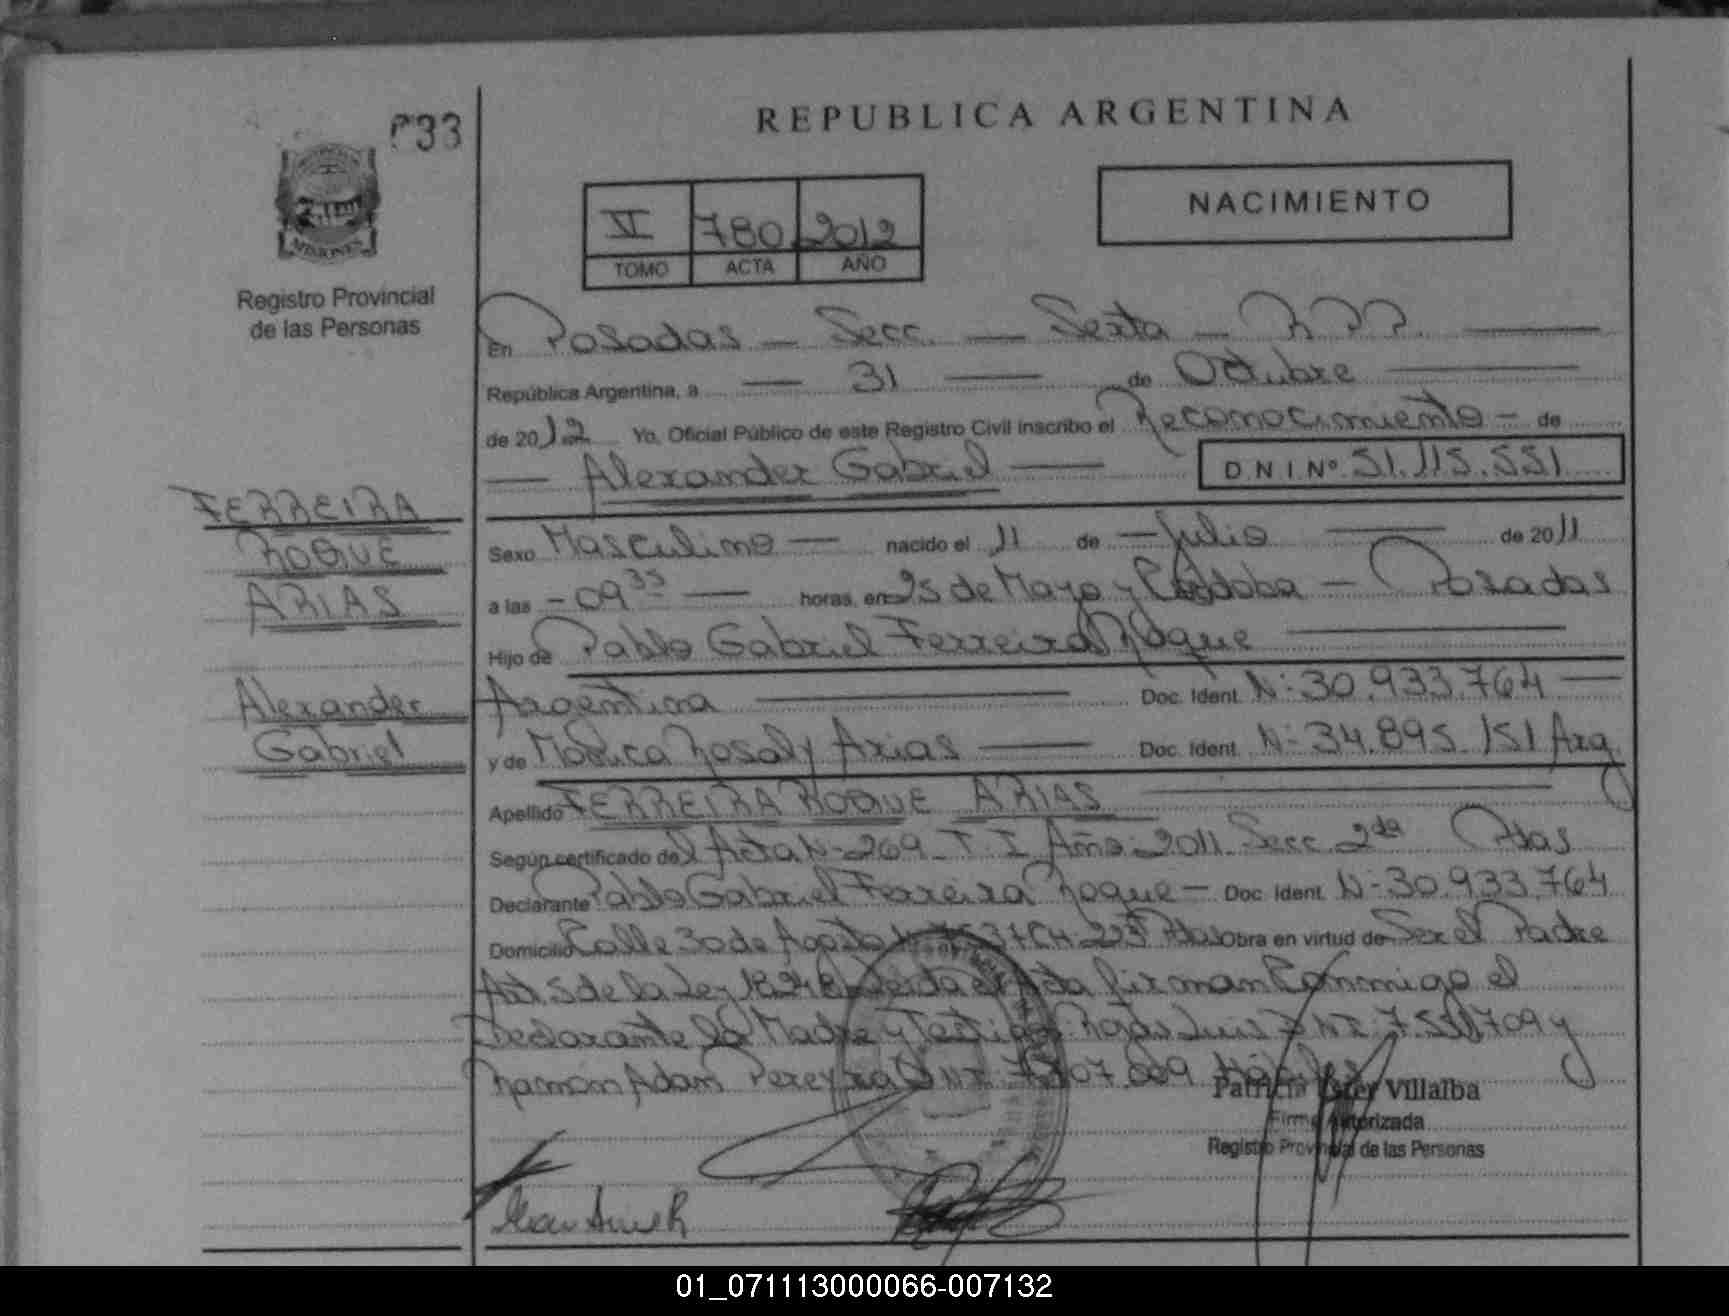 033
REPUBLICA ARGENTINA
MISIONES
Registro Provincial
de las Personas
VI 780 2012
TOMO ACTA AÑO
NACIMIENTO
En Posadas — Secc. — Sexta — R.P.P.
República Argentina, a — 31 — de Octubre
de 2012 Yo, Oficial Público de este Registro Civil inscribo el Reconocimiento - de
— Alexander Gabriel — D.N.I.Nº 51.115.551
FERREIRA
ROQUE
ARIAS
Alexander
Gabriel
Sexo Masculino — nacido el 11 de — Julio — de 2011
a las - 09 35 — horas, en 25 de Mayo y Córdoba — Posadas
Hijo de Pablo Gabriel Ferreira Roque
Argentina — Doc. Ident. N: 30.933.764 —
y de Mónica Rosaly Arias — Doc. Ident. N: 34.895.151 Arg
Apellido FERREIRA ROQUE ARIAS
Según certificado del Acta N- 269 T. I Año: 2011 Secc 2da Pdas
Declarante Pablo Gabriel Ferreira Roque — Doc. Ident. N- 30.933.764
Domicilio Calle 30 de Agosto CH 223 Pdas Obra en virtud de Ser el Padre
Art. 5 de la Ley 18248 Leida el Acta firman Conmigo el
Declarante la Madre y Testigos: Rojas Luis DNI: y
Ramón Adam Pereyra DNI:
Patricia Ester Villalba
Firma Autorizada
Registro Provincial de las Personas
01_071113000066-007132